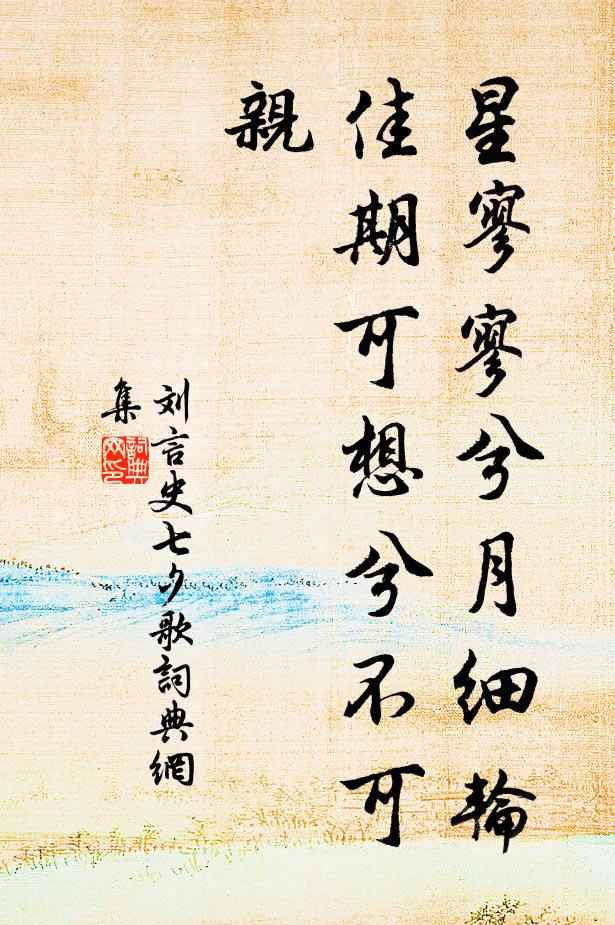 星寥寥兮月細輪
佳期可想兮不可
親
刘言史七夕歌詞典網
集
詞典
网印